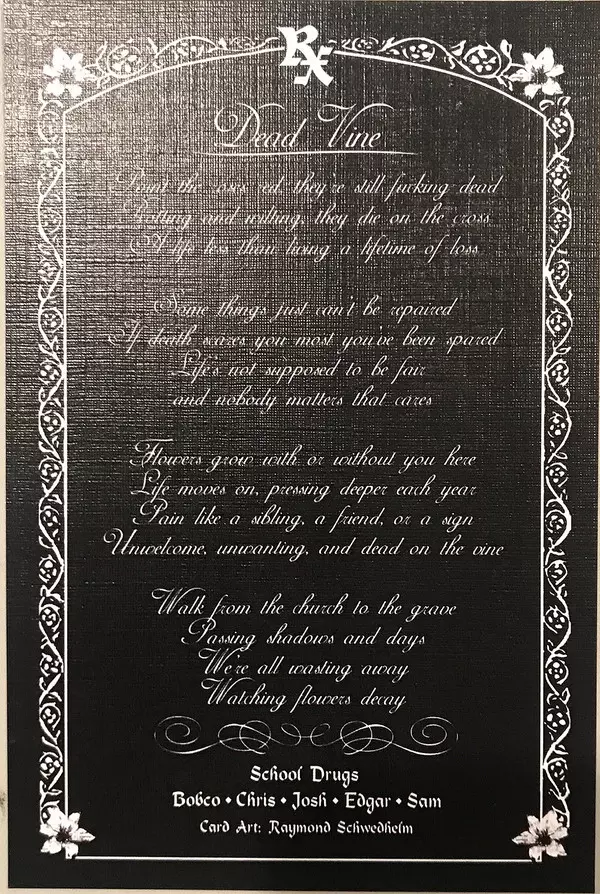 Rx
Dead Vine
Paint the roses red, they're still fucking dead
Rotting and wilting, they die on the cross
A life less than living a lifetime of loss
Some things just can't be repaired
If death scares you most you've been spared
Life's not supposed to be fair
and nobody matters that cares
Flowers grow with or without you here
Life moves on, pressing deeper each year
Pain like a sibling, a friend, or a sign
Unwelcome, unwanting, and dead on the vine
Walk from the church to the grave
Passing shadows and days
We're all wasting away
Watching flowers decay
School Drugs
Bobco • Chris • Josh • Edgar • Sam
Card Art: Raymond Schwedhelm